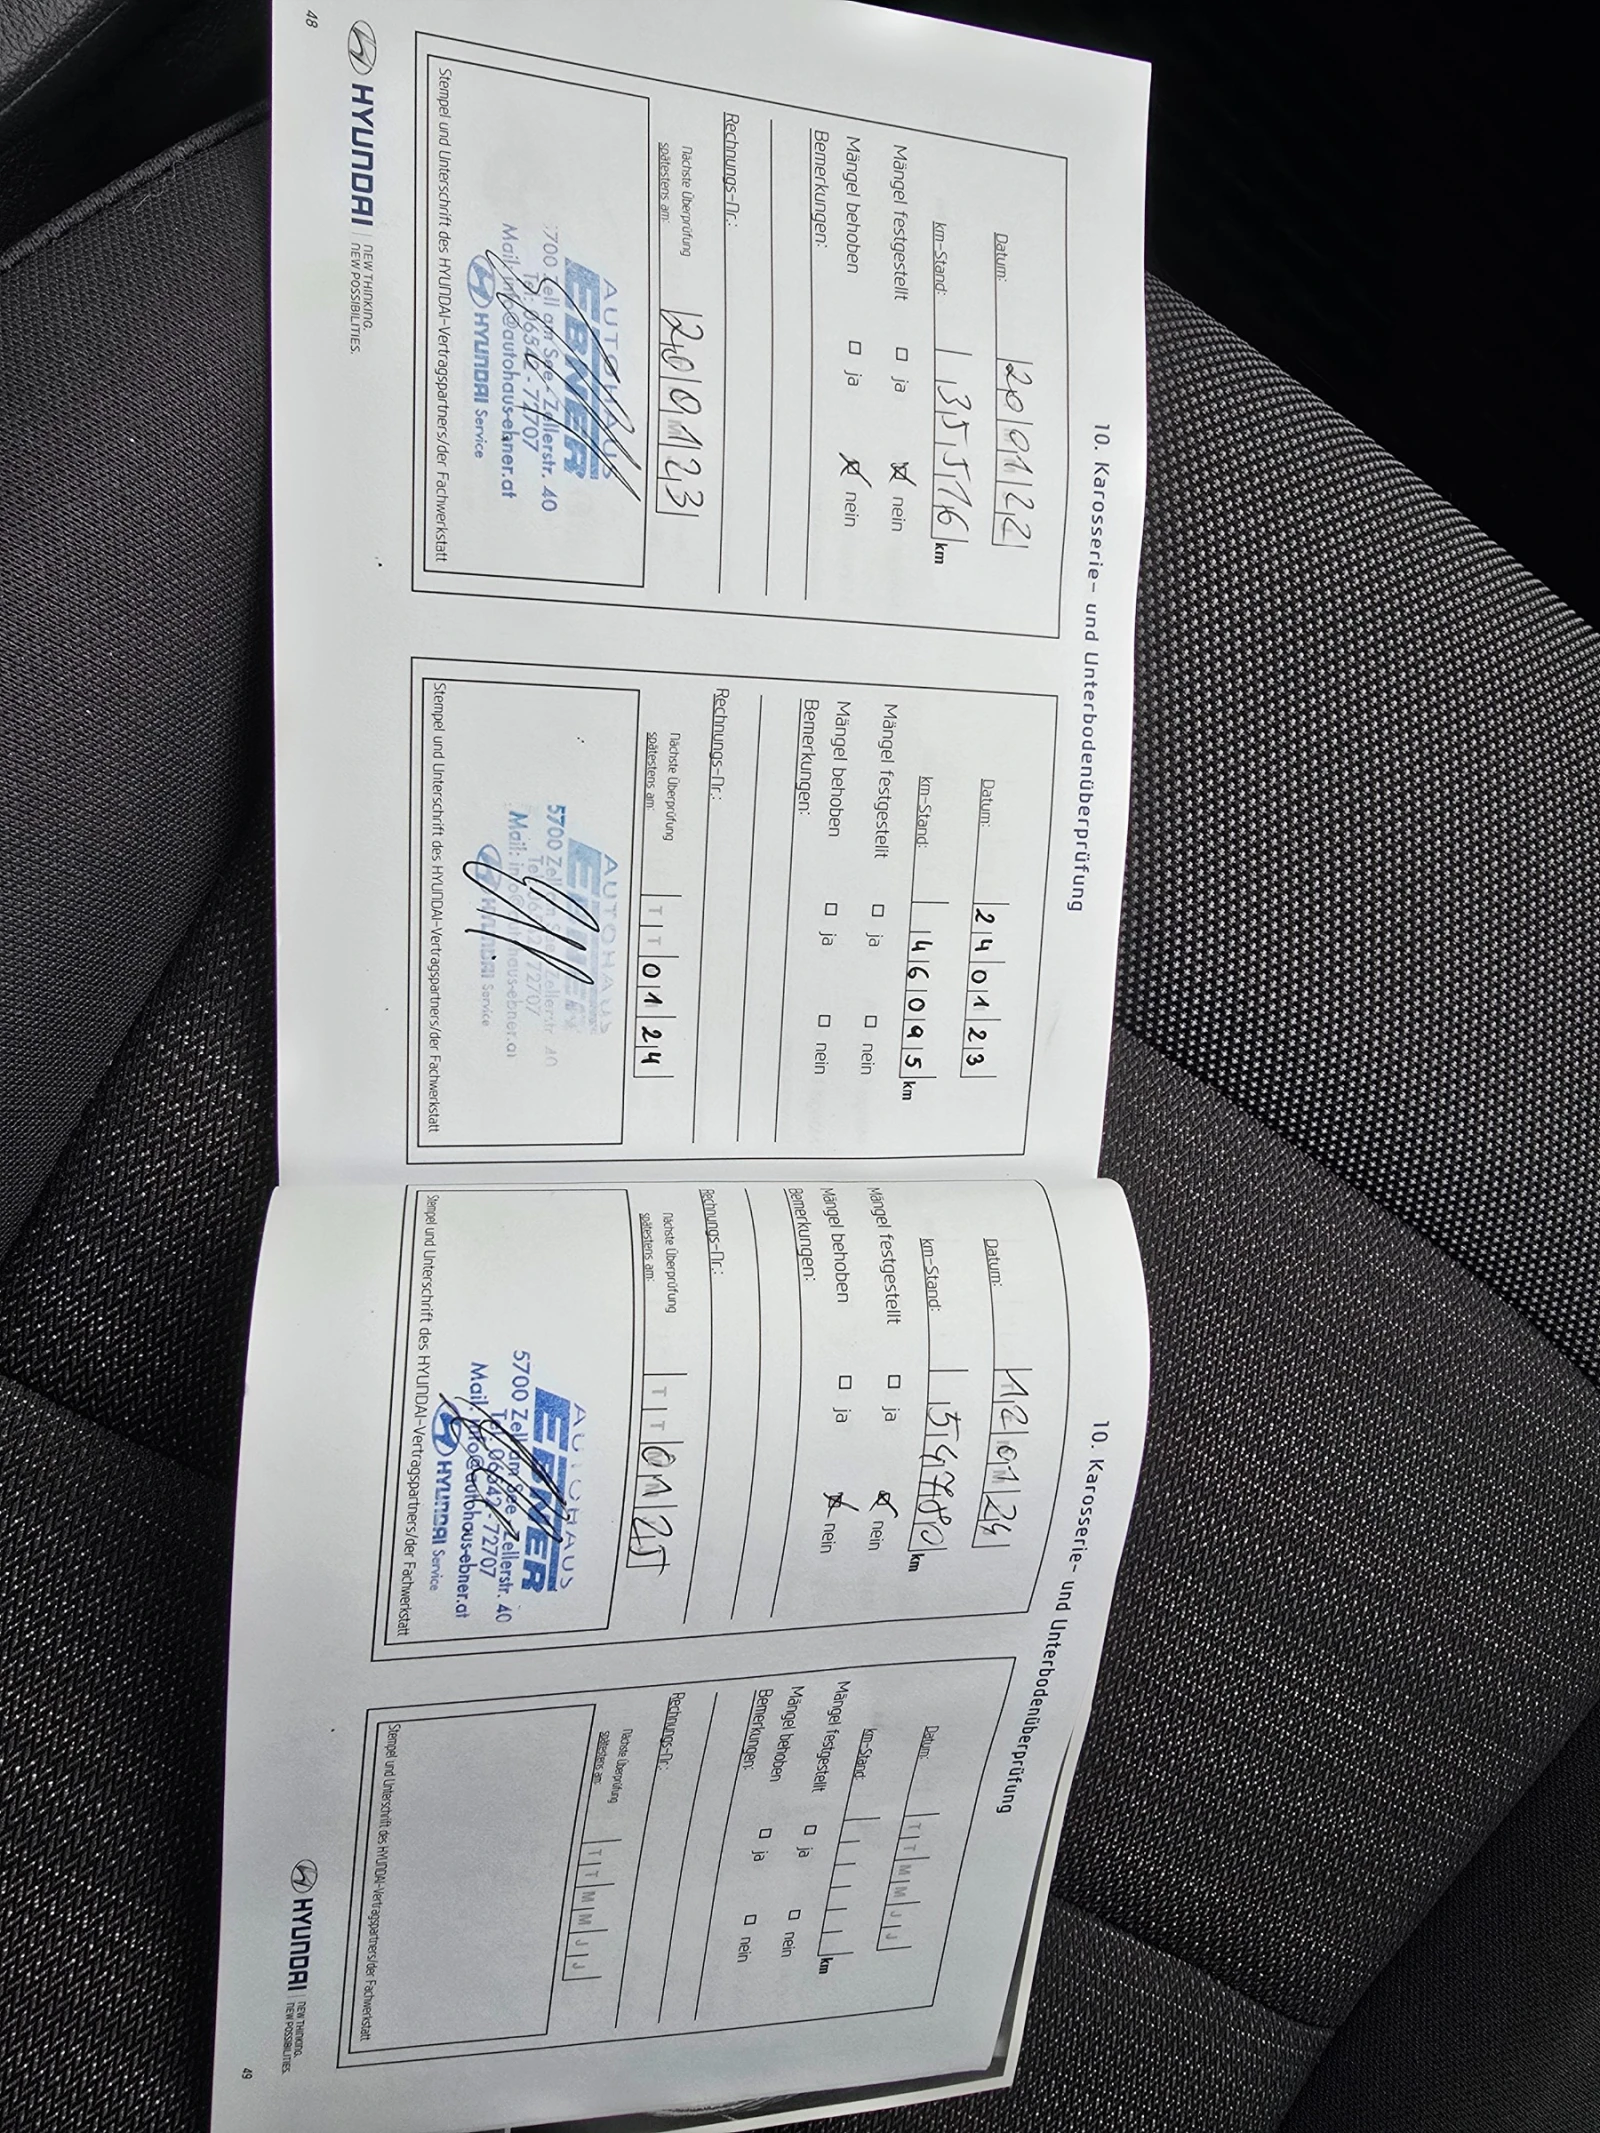 10. Karosserie- und Unterbodenüberprüfung
Datum: 20 01 22
km-Stand: 35516 km
Mängel festgestellt ☐ ja ☒ nein
Mängel behoben ☐ ja ☒ nein
Bemerkungen:
Rechnungs-Nr.:
Nächste Überprüfung
spätestens am: 20 01 23
AUTOHAUS
EBNER
5700 Zell am See - Zellerstr. 40
Tel: 06542-72707
Mail: info@autohaus-ebner.at
HYUNDAI Service
Stempel und Unterschrift des HYUNDAI-Vertragspartners/der Fachwerkstatt
Datum: 24 01 23
km-Stand: 46095 km
Mängel festgestellt ☐ ja ☐ nein
Mängel behoben ☐ ja ☐ nein
Bemerkungen:
Rechnungs-Nr.:
Nächste Überprüfung
spätestens am: T T 01 24
AUTOHAUS
EBNER
5700 Zell am See - Zellerstr. 40
Tel: 06542-72707
Mail: info@autohaus-ebner.at
HYUNDAI Service
Stempel und Unterschrift des HYUNDAI-Vertragspartners/der Fachwerkstatt
48
HYUNDAI | NEW THINKING.
NEW POSSIBILITIES.
10. Karosserie- und Unterbodenüberprüfung
Datum: 12 01 24
km-Stand: 54780 km
Mängel festgestellt ☐ ja ☒ nein
Mängel behoben ☐ ja ☒ nein
Bemerkungen:
Rechnungs-Nr.:
Nächste Überprüfung
spätestens am: T T 01 25
AUTOHAUS
EBNER
5700 Zell am See - Zellerstr. 40
Tel: 06542-72707
Mail: info@autohaus-ebner.at
HYUNDAI Service
Stempel und Unterschrift des HYUNDAI-Vertragspartners/der Fachwerkstatt
Datum: T T M M J J
km-Stand: km
Mängel festgestellt ☐ ja ☐ nein
Mängel behoben ☐ ja ☐ nein
Bemerkungen:
Rechnungs-Nr.:
Nächste Überprüfung
spätestens am: T T M M J J
Stempel und Unterschrift des HYUNDAI-Vertragspartners/der Fachwerkstatt
HYUNDAI | NEW THINKING.
NEW POSSIBILITIES.
49